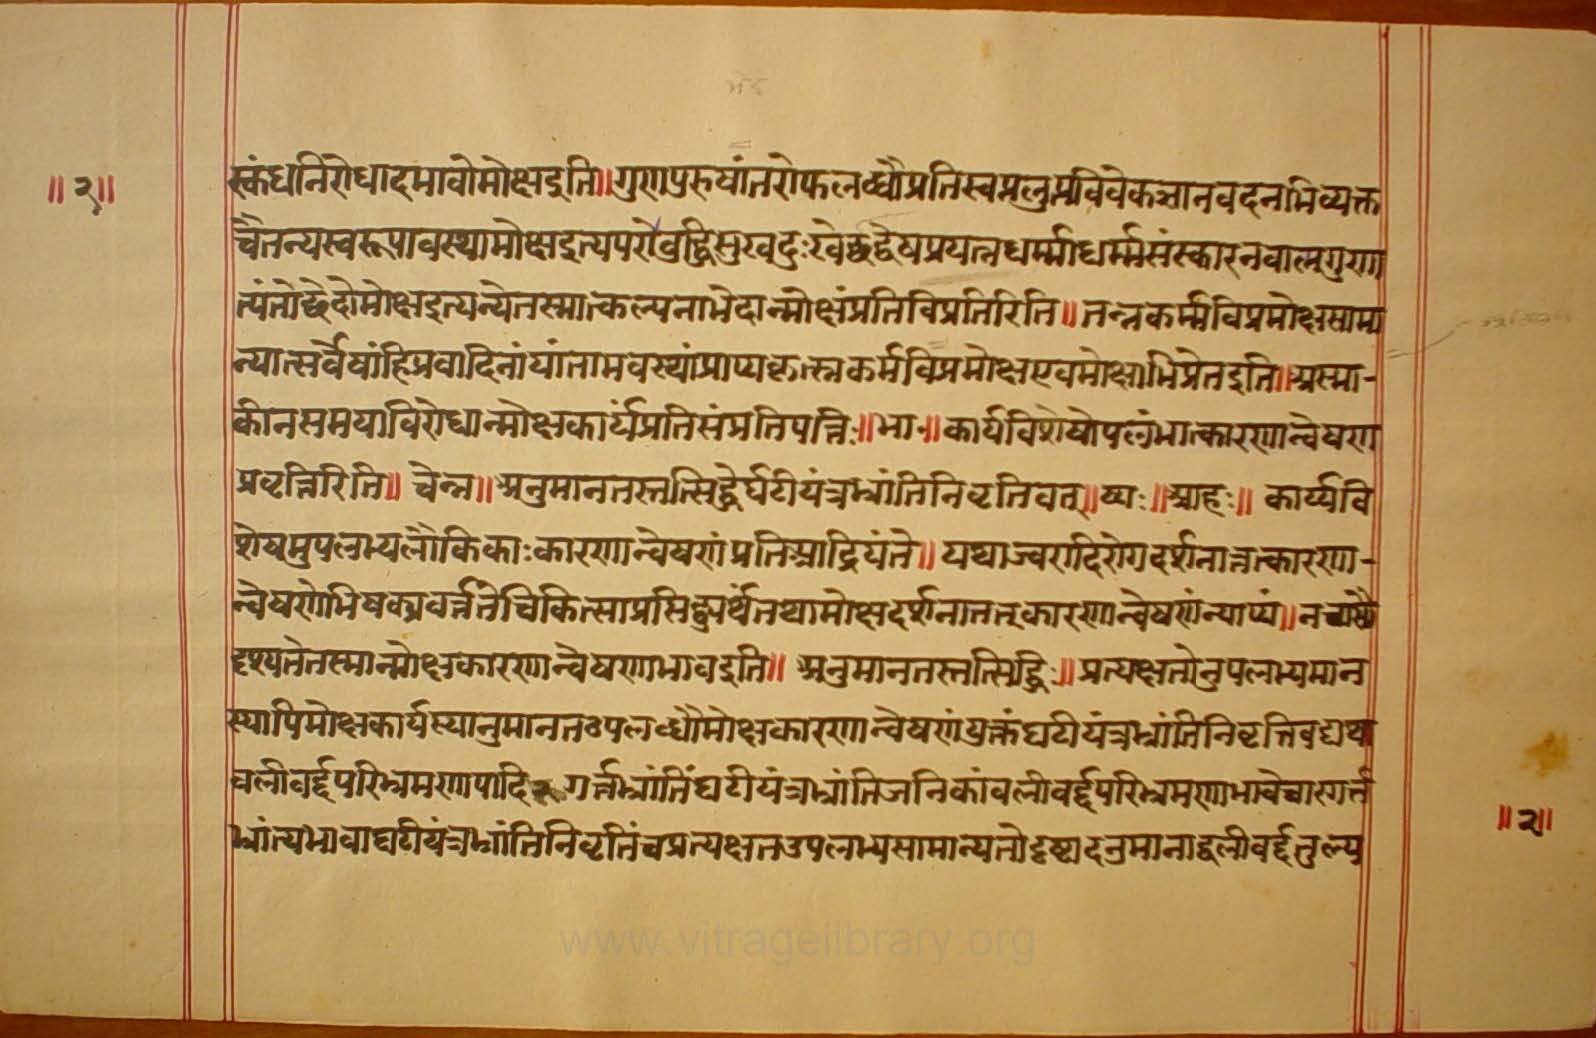 ॥२॥
स्कंधनिरोधादभावोमोक्षइति॥गुणपुरुषांतरोफलब्धौप्रतिस्वप्नलुप्तविवेकज्ञानवदनाभिव्यक्त
चैतन्यस्वरूपावस्थामोक्षइत्यपरेवुद्धिसुखदुःखेच्छद्वेषप्रयत्नधर्म्माधर्म्मसंस्कारनवात्मगुणा
त्यंतोच्छेदोमोक्षइत्यन्येतस्मात्कल्पनाभेदान्मोक्षंप्रतिविप्रतिरिति॥तन्नकर्म्मविप्रमोक्षसामा
न्यात्सर्वेषांहिप्रवादिनांयांतामवस्थांप्राप्यकृत्स्नकर्मविप्रमोक्षएवमोक्षाभिप्रेतइति॥अस्मा-
कीनसमयाविरोधान्मोक्षकार्यंप्रतिसंप्रतिपत्तिः॥भा॰॥कार्यविशेषोपलंभात्कारणान्वेषण
प्रवृत्तिरिति॥चेन्न॥अनुमानतस्तत्सिद्धेर्घटीयंत्रभ्रांतिनिवृतिवत्॥व्यः॥आहः॥कार्य्यवि
शेषमुपलभ्यलौकिकाःकारणान्वेषणंप्रतिआद्रियंते॥यथाज्वरादिरोगदर्शनात्तत्कारणा-
न्वेषणेभिषक्प्रवर्त्ततेचिकित्साप्रसिद्ध्यर्थंतथामोक्षदर्शनातत्कारणान्वेषणंन्याय्यं॥नचासौ
दृश्यतेतस्मान्मोक्षकारणान्वेषणाभावइति॥अनुमानतस्तत्सिद्धिः॥प्रत्यक्षतोनुपलभ्यमान
स्यापिमोक्षकार्यस्यानुमानतउपलब्धौमोक्षकारणान्वेषणंयुक्तंघटीयंत्रभ्रांतिनिवृत्तिवद्यथा
वलीवर्द्दपरिभ्रमणापादि गर्त्तभ्रांतिंघटीयंत्रभ्रांतिजनिकांवलीवर्द्दपरिभ्रमणाभावेचारगर्त्त
भ्रांत्यभावाघटीयंत्रभ्रांतिनिवृतिंचप्रत्यक्षतउपलभ्यसामान्यतोदृष्टादनुमानाद्वलीवर्द्दतुल्य
॥२॥
www.vitragelibrary.org